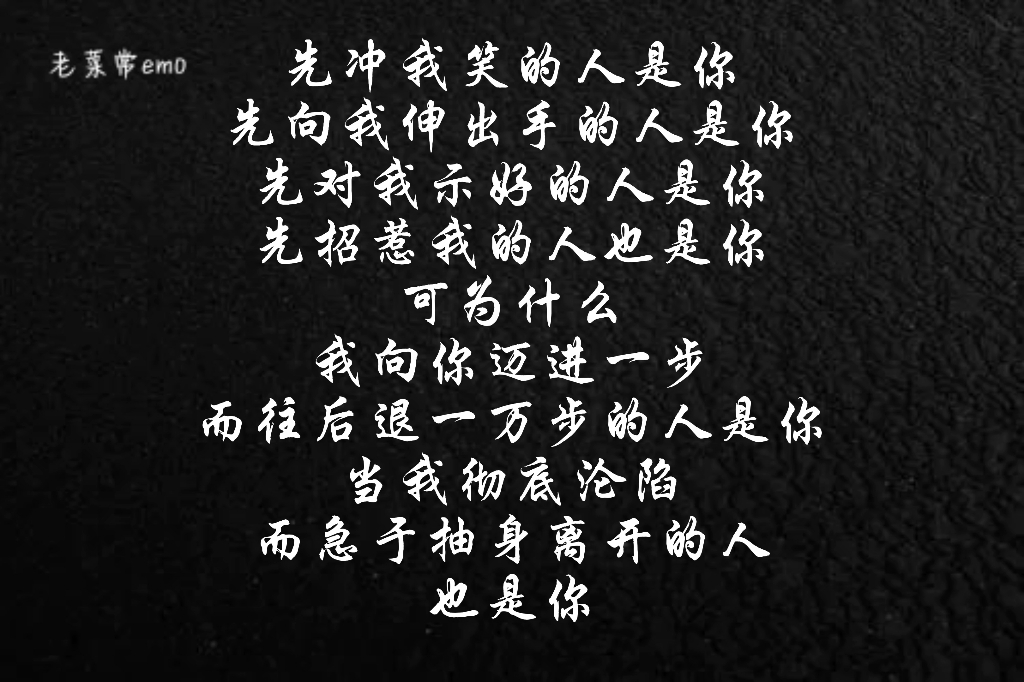 老菜常emo
先冲我笑的人是你
先向我伸出手的人是你
先对我示好的人是你
先招惹我的人也是你
可为什么
我向你迈进一步
而往后退一万步的人是你
当我彻底沦陷
而急于抽身离开的人
也是你